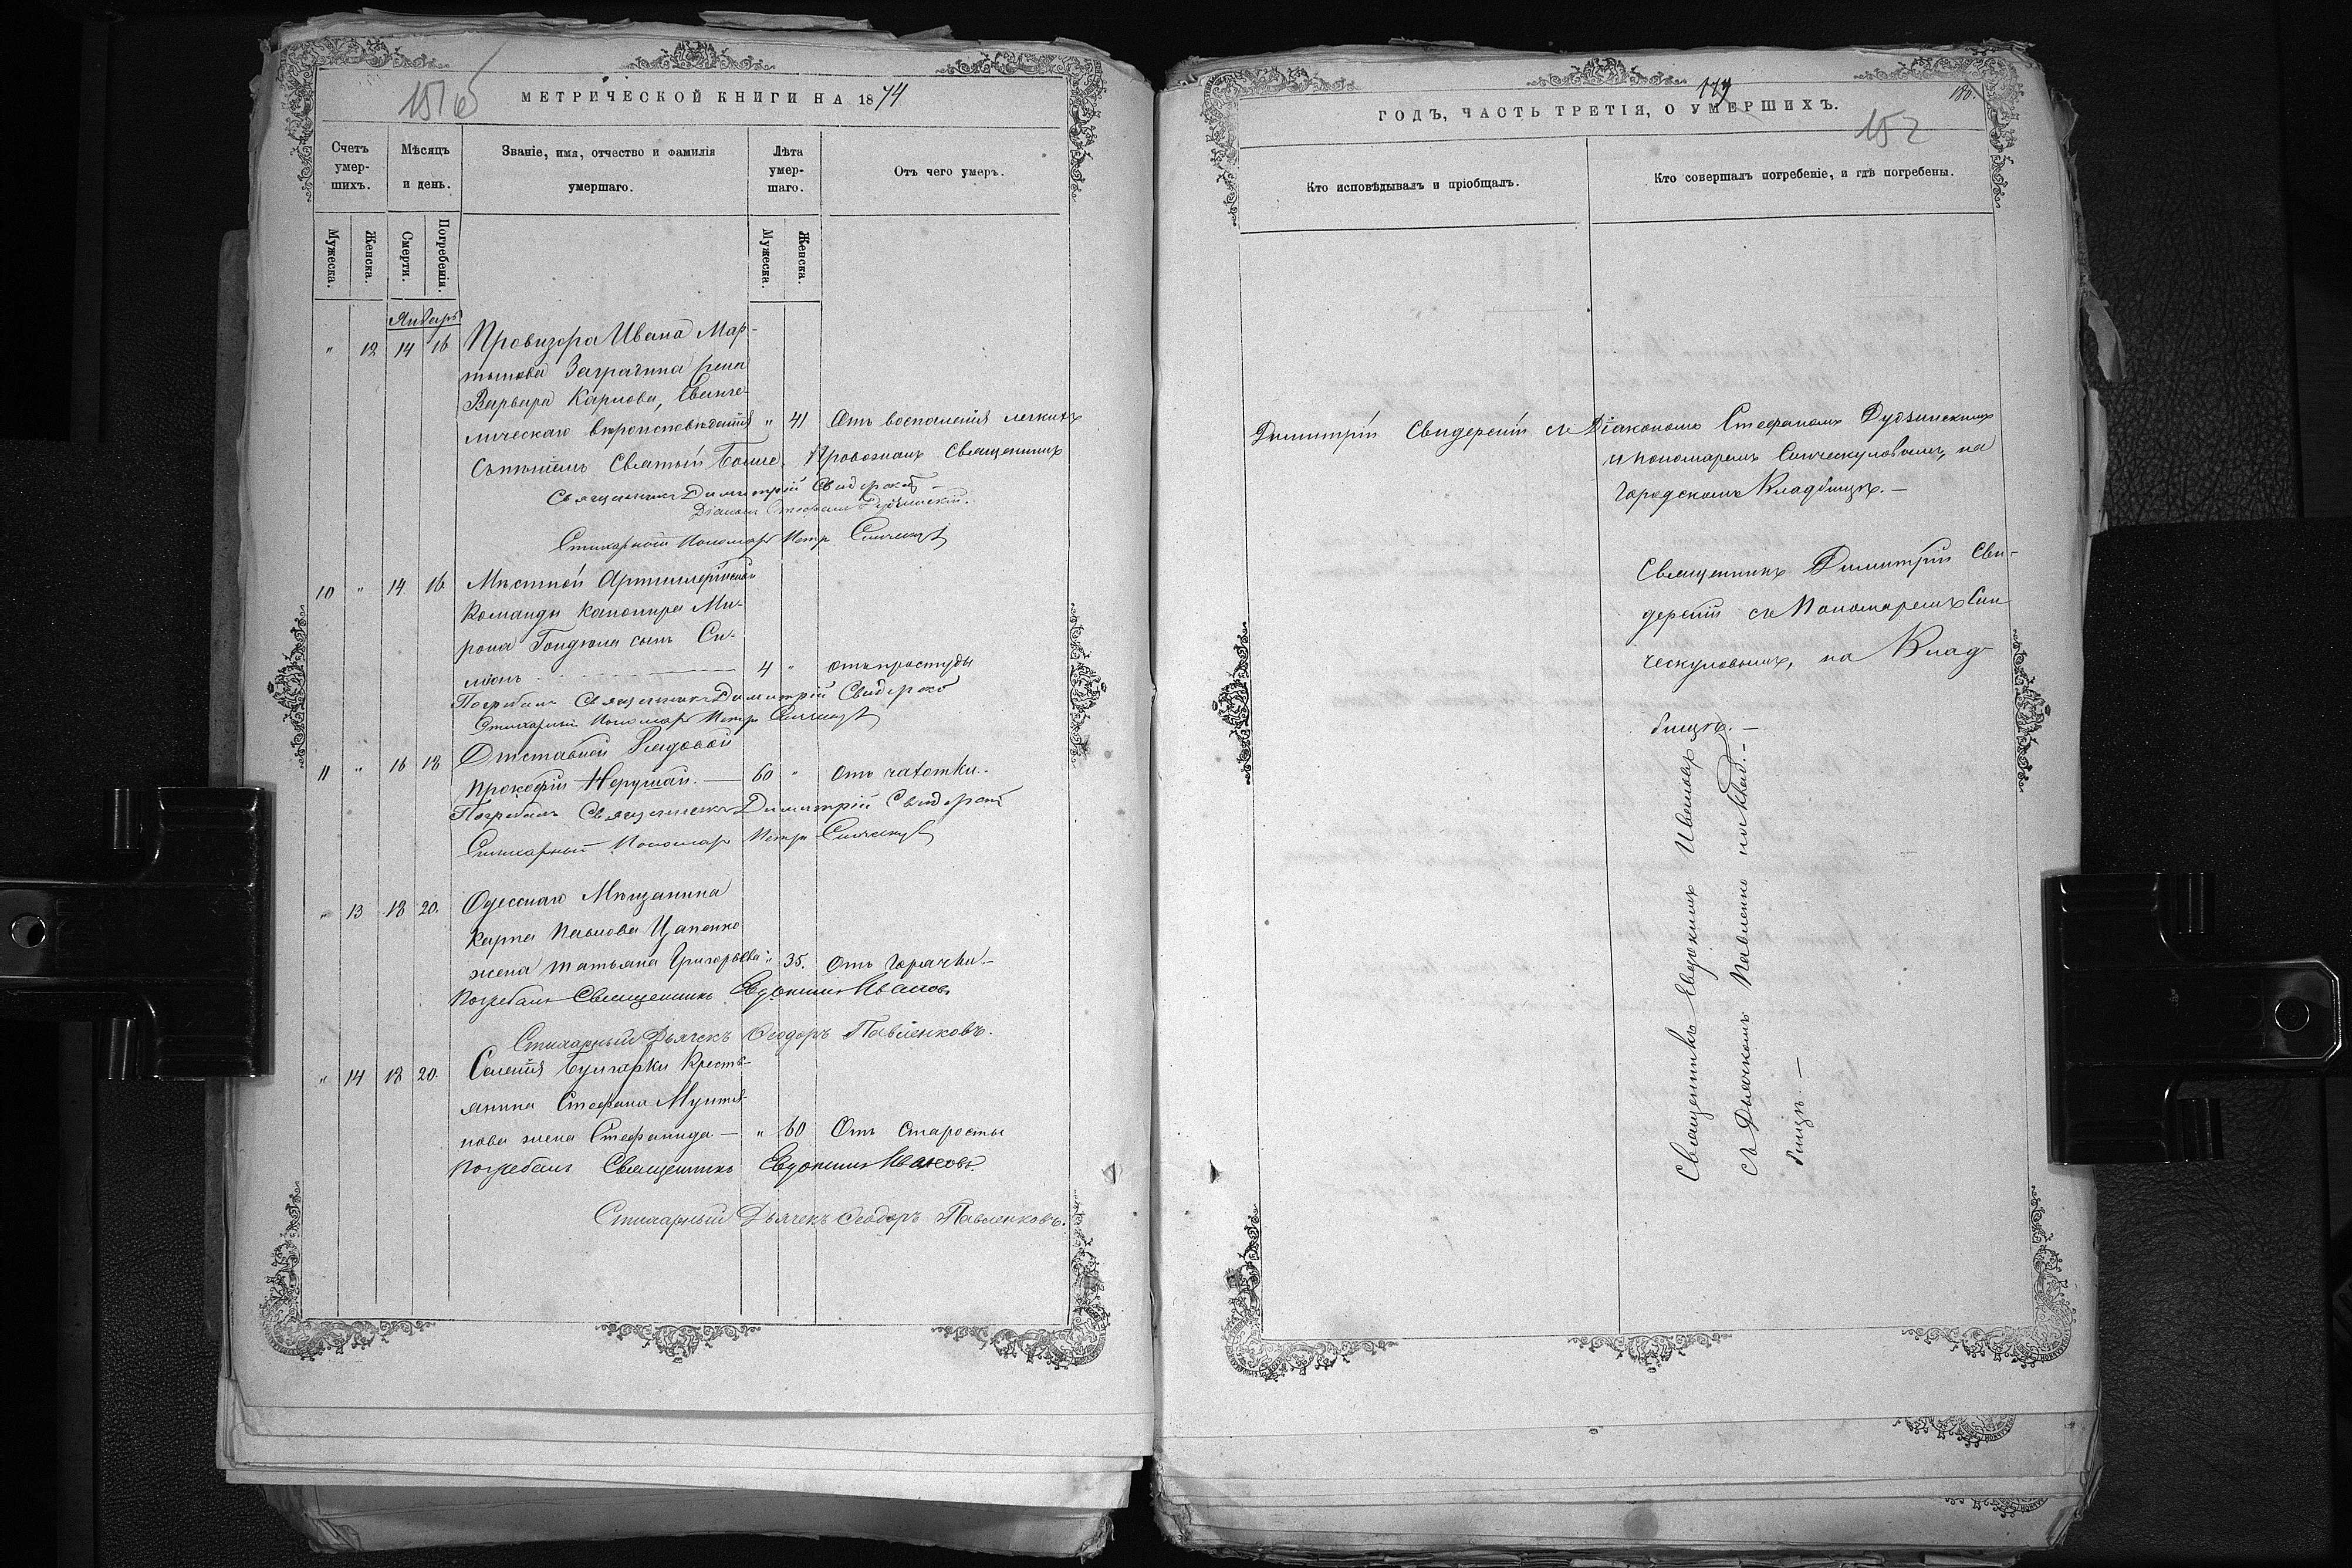 151об
МЕТРИЧЕСКОЙ КНИГИ НА 1874
Счетъ умер-шихъ.
Мѣсяцъ и день.
Званіе, имя, отчество и фамилія умершаго.
Лѣта умер-шаго.
Отъ чего умеръ.
Мужеска.
Женска.
Смерти.
Погребенія.
Мужеска.
Женска.
Январь
" 12 14 16 Провизора Ивана Мар-
тынова жена
Варвара Карлова, Еванге-
лическаго вѣроисповѣданія " 41 Отъ воспаленія легкихъ
Святый Боже. Провожалъ Священникъ
Священникъ Димитрій Свидерскій
Діаконъ Стефанъ
Стихарный Пономарь Петръ
10 " 14 16 Мѣстной Артиллерійской
Команды канонира Ми-
рона сынъ Си-
міонъ 4 " отъ простуды
Погребалъ Священникъ Димитрій Свидерскій
Стихарный Пономарь Петръ
11 " 16 18 Отставной Рядовой
Прокофій Нерушай. — 60 " Отъ чахотки.
Погребалъ Священникъ Димитрій Свидерскій
Стихарный Пономарь Петръ
" 13 18 20. Одесскаго Мѣщанина
Карпа Павлова Цапенко
жена Татьяна Григорьева " 35. Отъ горячки.—
Погребалъ Священникъ Евдокимъ Ивановъ
Стихарный Дьячекъ Ѳеодоръ Павленковъ.
" 14 18 20. Селенія Булгарки Крестъ-
янина Стефана
нова жена Стефанида — " 60 Отъ Старости
Погребалъ Священникъ Евдокимъ Ивановъ.
Стихарный Дьячекъ Ѳеодоръ Павленковъ.
179
180.
ГОДЪ, ЧАСТЬ ТРЕТІЯ, О УМЕРШИХЪ.
152
Кто исповѣдывалъ и пріобщалъ.
Кто совершалъ погребеніе, и гдѣ погребены.
Димитрій Свидерскій съ Діакономъ Стефаномъ
и пономаремъ на
городскомъ Кладбищѣ.—
Священникъ Димитрій Сви-
дерскій съ Пономаремъ Син
ческуловымъ, на Клад-
бищѣ.—
Священникъ Евдокимъ Ивановъ
съ Дьячкомъ Павленко на Клад-
бищѣ.—